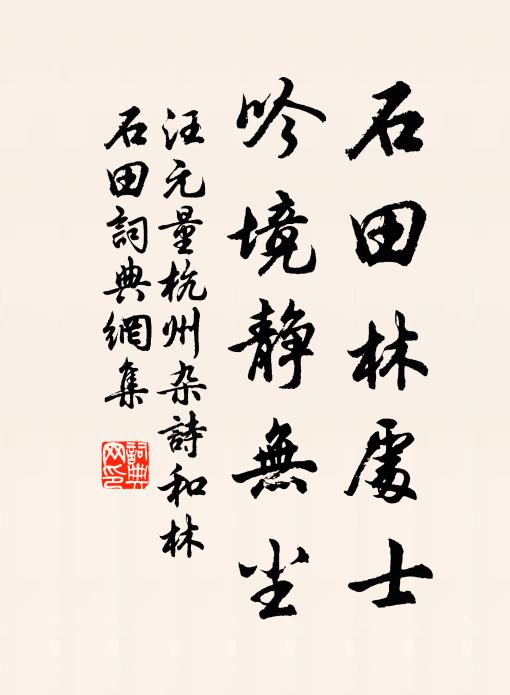 石田林處士
吟境靜無尘
汪元量杭州杂詩和林
石田詞典網集
詞典網印